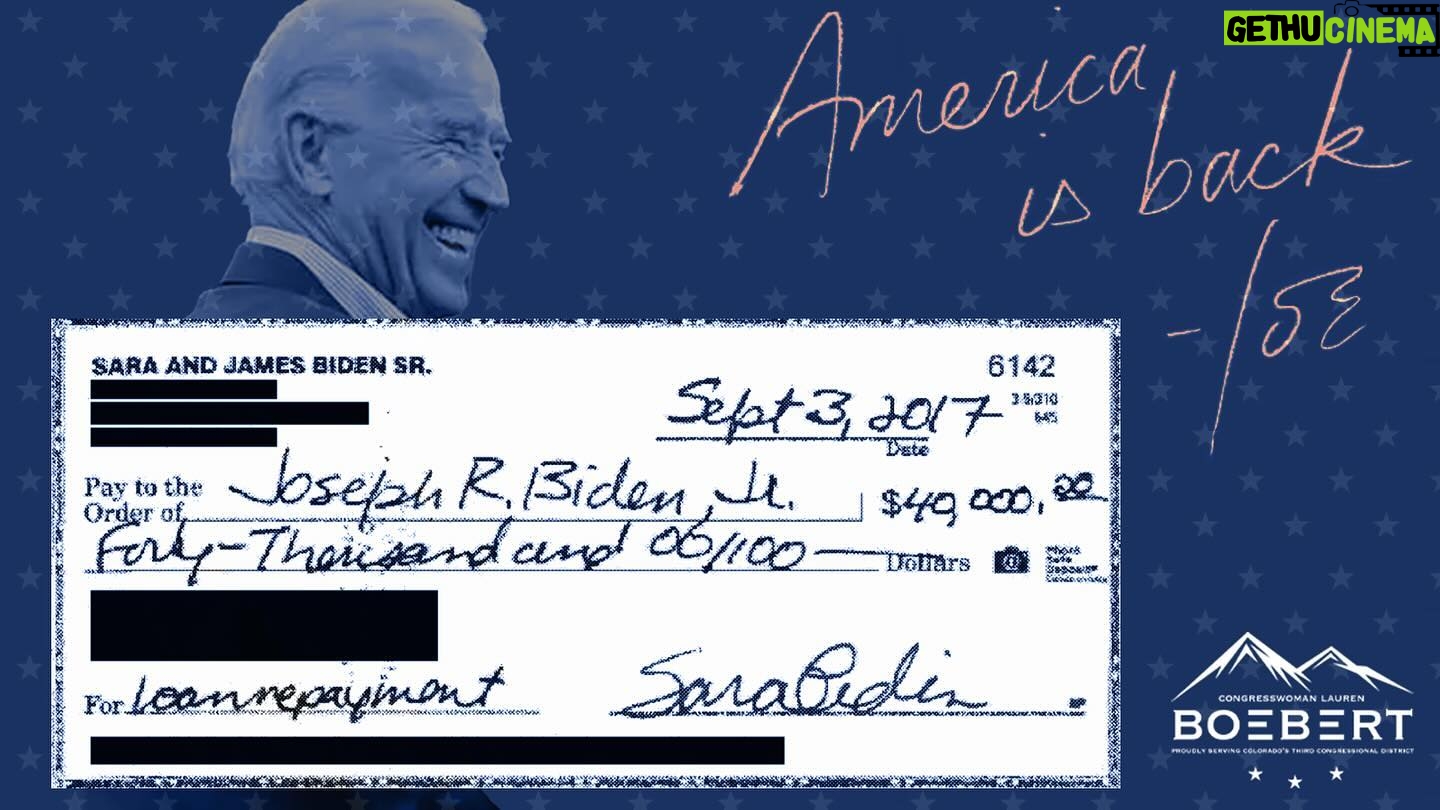 GETHUCINEMA
America
is back
-JOE
SARA AND JAMES BIDEN SR.
6142
Sept 3, 2017
Date
Pay to the
Order of
Joseph R. Biden, Jr.
$40,000.00
Forty-Thousand and 00/100
Dollars
For loan repayment
Sara Biden
CONGRESSWOMAN LAUREN
BOEBERT
PROUDLY SERVING COLORADO'S THIRD CONGRESSIONAL DISTRICT